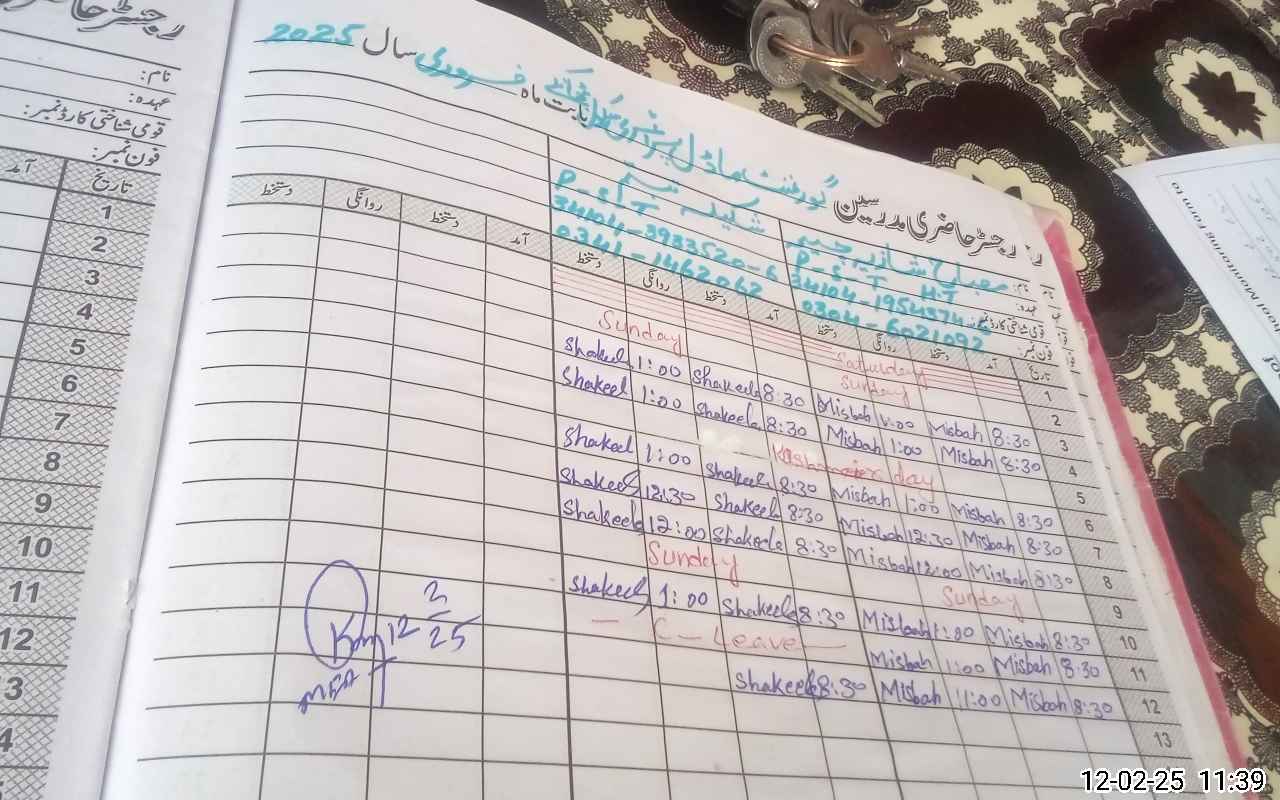 رجسٹر حاضری مدرسین گورنمنٹ ماڈل پرائمری سکول بابت ماہ فروری سال 2025
نام: مصباح شازیہ رحیم
شکیلہ نسیم
عہدہ: P-S-T H-T
P-S-T
قومی شناختی کارڈ نمبر: 34104-1954374-
34104-3933520-6
فون نمبر: 0304-6021092
0341-1462062
تاریخ آمد دستخط روانگی دستخط آمد دستخط روانگی دستخط آمد دستخط روانگی دستخط
1 Saturday
2 Sunday Sunday
3 8:30 Misbah 1:00 Misbah 8:30 Shakeela 1:00 Shakeel
4 8:30 Misbah 1:00 Misbah 8:30 Shakeela 1:00 Shakeel
5 Kashmeier day
6 8:30 Misbah 1:00 Misbah 8:30 Shakeela 1:00 Shakeel
7 8:30 Misbah 12:30 Misbah 8:30 Shakeela 12:30 Shakeel
8 8:30 Misbah 12:00 Misbah 8:30 Shakeela 12:00 Shakeela
9 Sunday Sunday
10 8:30 Misbah 1:00 Misbah 8:30 Shakeela 1:00 Shakeela
11 8:30 Misbah 1:00 Misbah — C-Leave —
12 8:30 Misbah 11:00 Misbah 8:30 Shakeela
13
12 2/25
MEA
رجسٹر حاضری
نام:
عہدہ:
قومی شناختی کارڈ نمبر:
فون نمبر:
تاریخ آمد
1
2
3
4
5
6
7
8
9
10
11
12
3
4
Monitoring Form
12-02-25 11:39